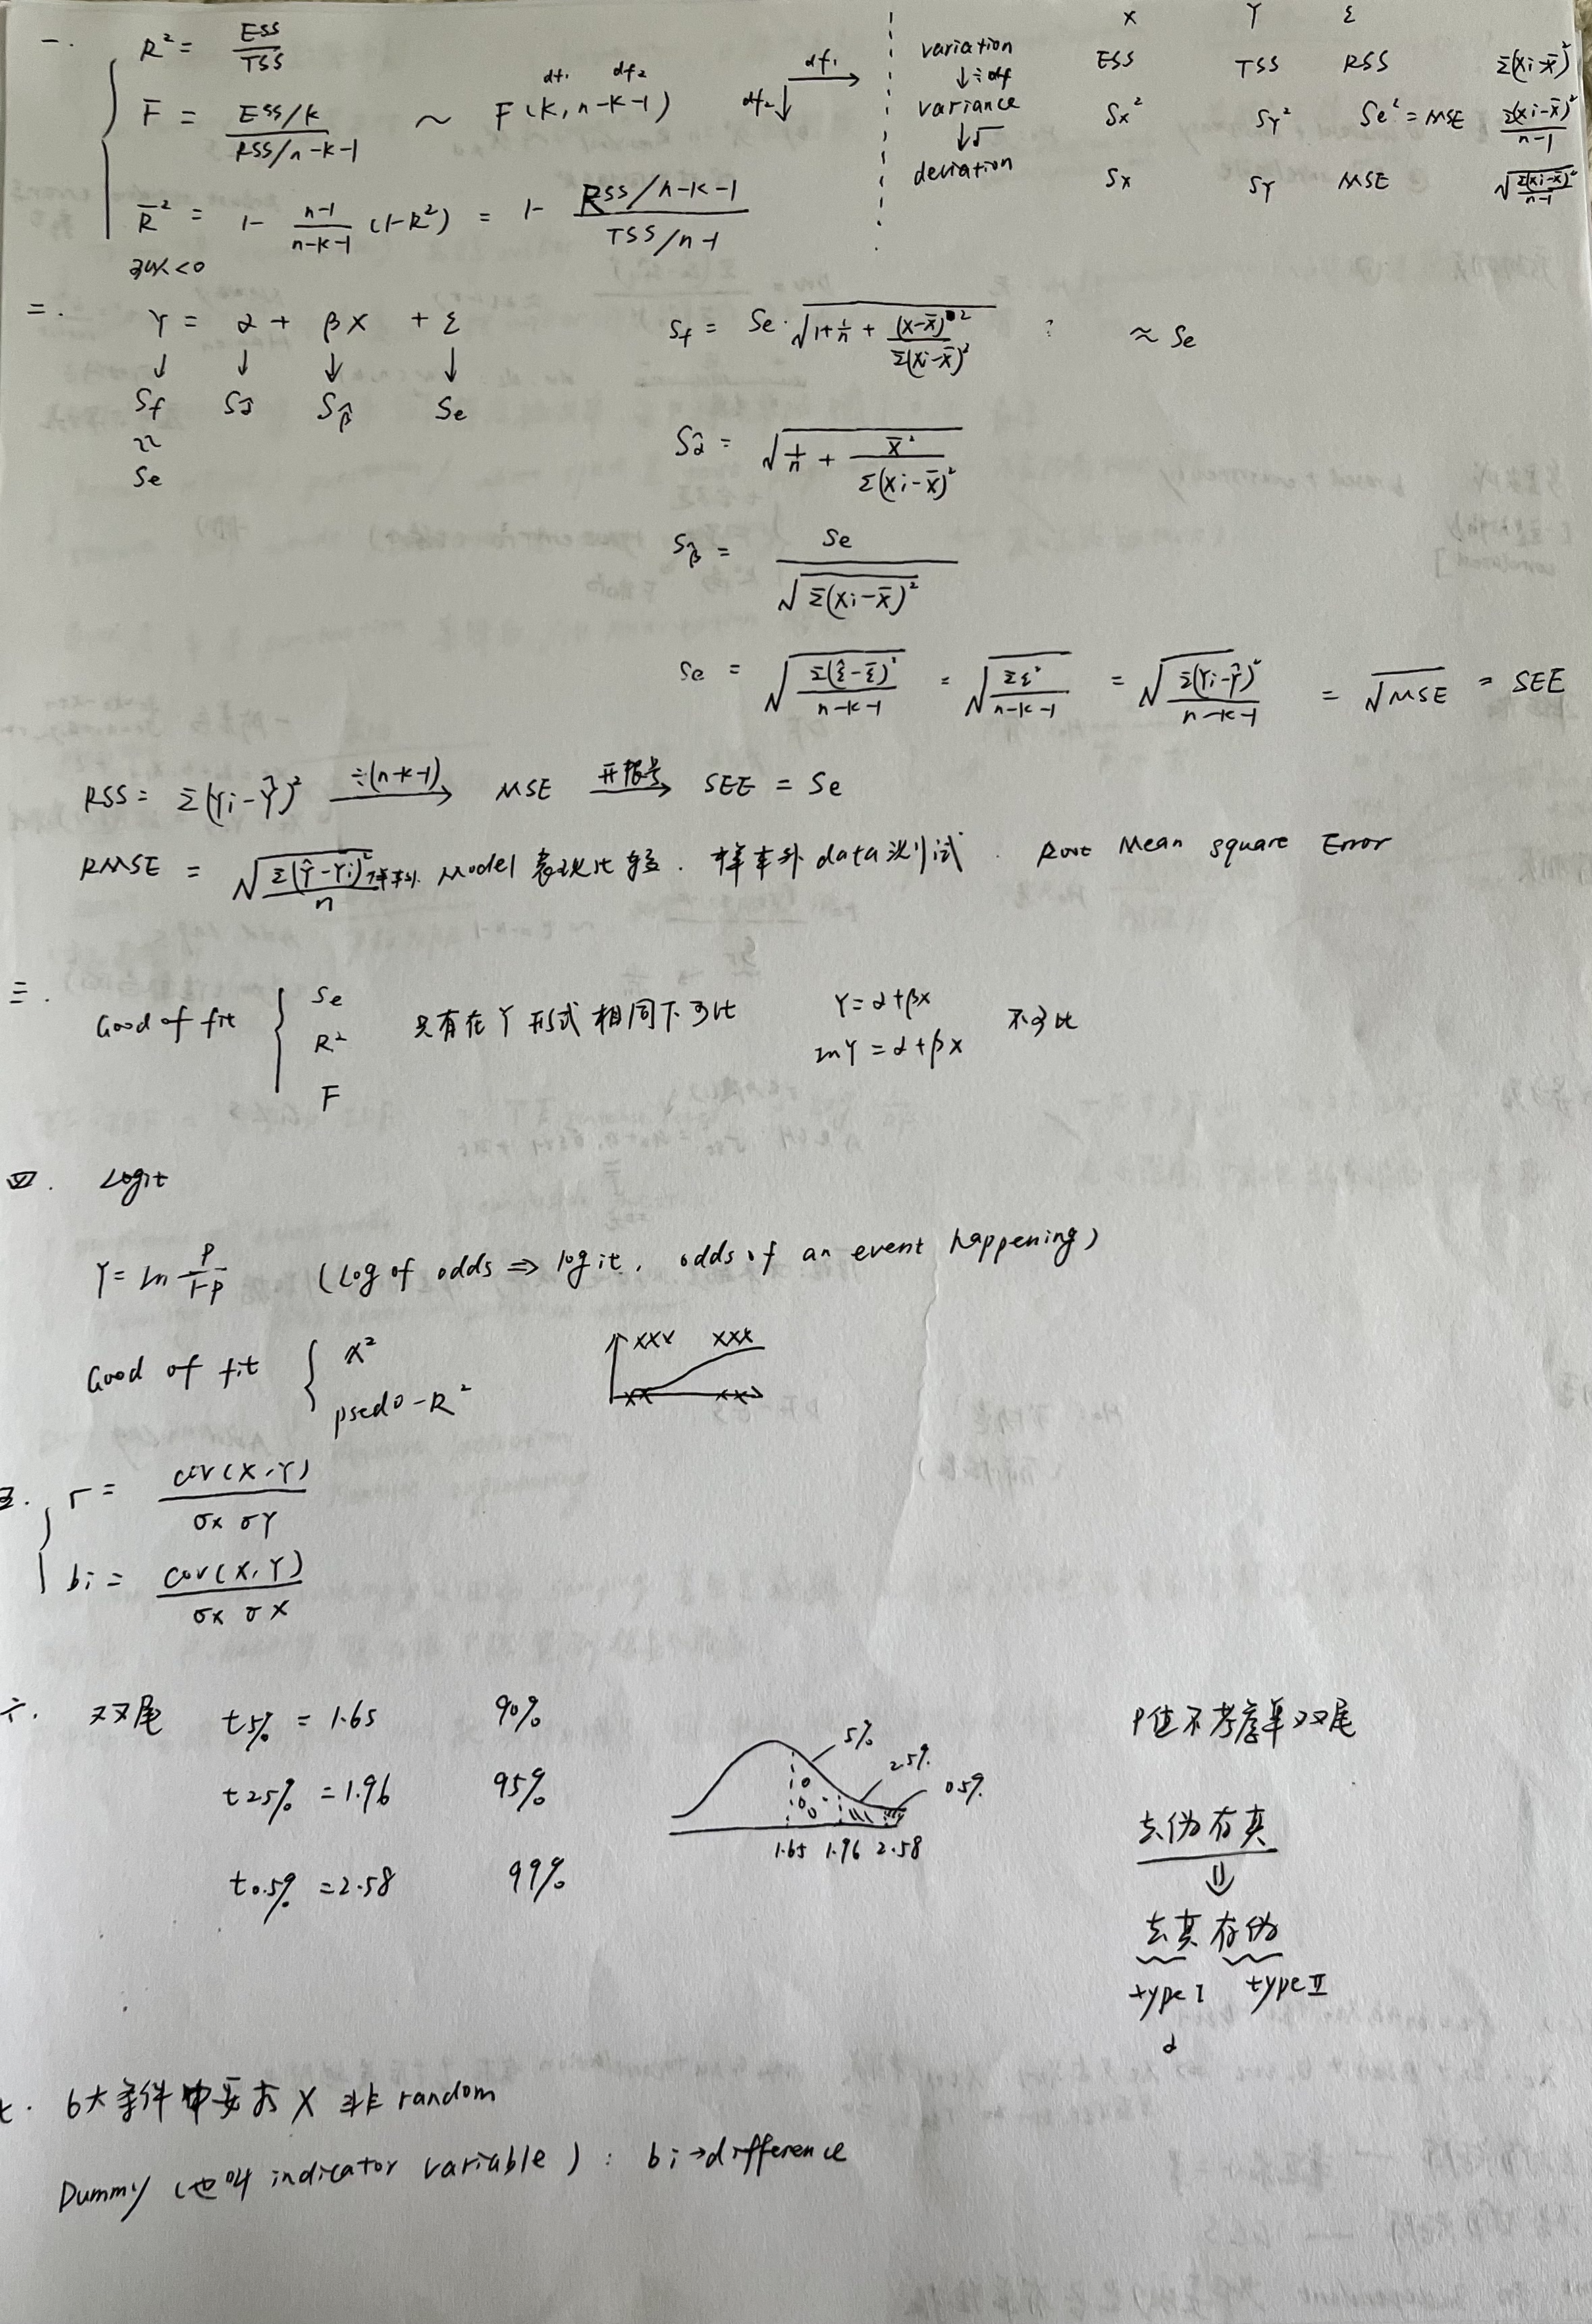 一. R² = ESS/TSS
F = (ESS/k)/(RSS/n-k-1) ~ F(k, n-k-1) df₁ df₂
df₁ → df₂ ↓
R̄² = 1 - (n-1)/(n-k-1) (1-R²) = 1 - (RSS/n-k-1)/(TSS/n-1)
可以<0
X Y ε
variation ESS TSS RSS Σ(Xi-X̄)²
↓÷df
variance Sx² SY² Se² = MSE Σ(Xi-X̄)²/(n-1)
↓√
deviation Sx SY MSE √(Σ(Xi-X̄)²/(n-1))
二. Y = α + βX + ε
↓ ↓ ↓ ↓
Sf Sα̂ Sβ̂ Se
≈
Se
Sf = Se·√(1+1/n + (X-X̄)²/Σ(Xi-X̄)²) ≈ Se
Sα̂ = √(1/n + X̄²/Σ(Xi-X̄)²)
Sβ̂ = Se/√(Σ(Xi-X̄)²)
Se = √(Σ(ε̂-ε̄)²/(n-k-1)) = √(Σε²/(n-k-1)) = √(Σ(Yi-Ŷ)²/(n-k-1)) = √MSE = SEE
RSS = Σ(Yi-Ŷ)² ÷(n-k-1)→ MSE 开根号→ SEE = Se
RMSE = √(Σ(Ŷ-Yi)²样本外/n) Model 表现比较. 样本外data测试. Root Mean square Error
三. Good of fit { Se R² F 只有在Y形式相同下可比
Y = α+βX
lnY = α+βX 不可比
四. Logit
Y = ln P/(1-P) (Log of odds ⇒ logit, odds of an event happening)
Good of fit { χ² psedo-R²
xxx xxx
xx xx
五. r = cov(X,Y)/(σx σY)
bi = cov(X,Y)/(σx σX)
六. 双尾 t5% = 1.65 90%
t2.5% = 1.96 95%
t0.5% = 2.58 99%
5% 2.5% 0.5%
1.65 1.96 2.58
P值不考虑单双尾
去伪存真
⇓
去真存伪
type I type II
α
七. 6大条件中要求 X 非 random
Dummy (也叫 indicator variable): bi→difference